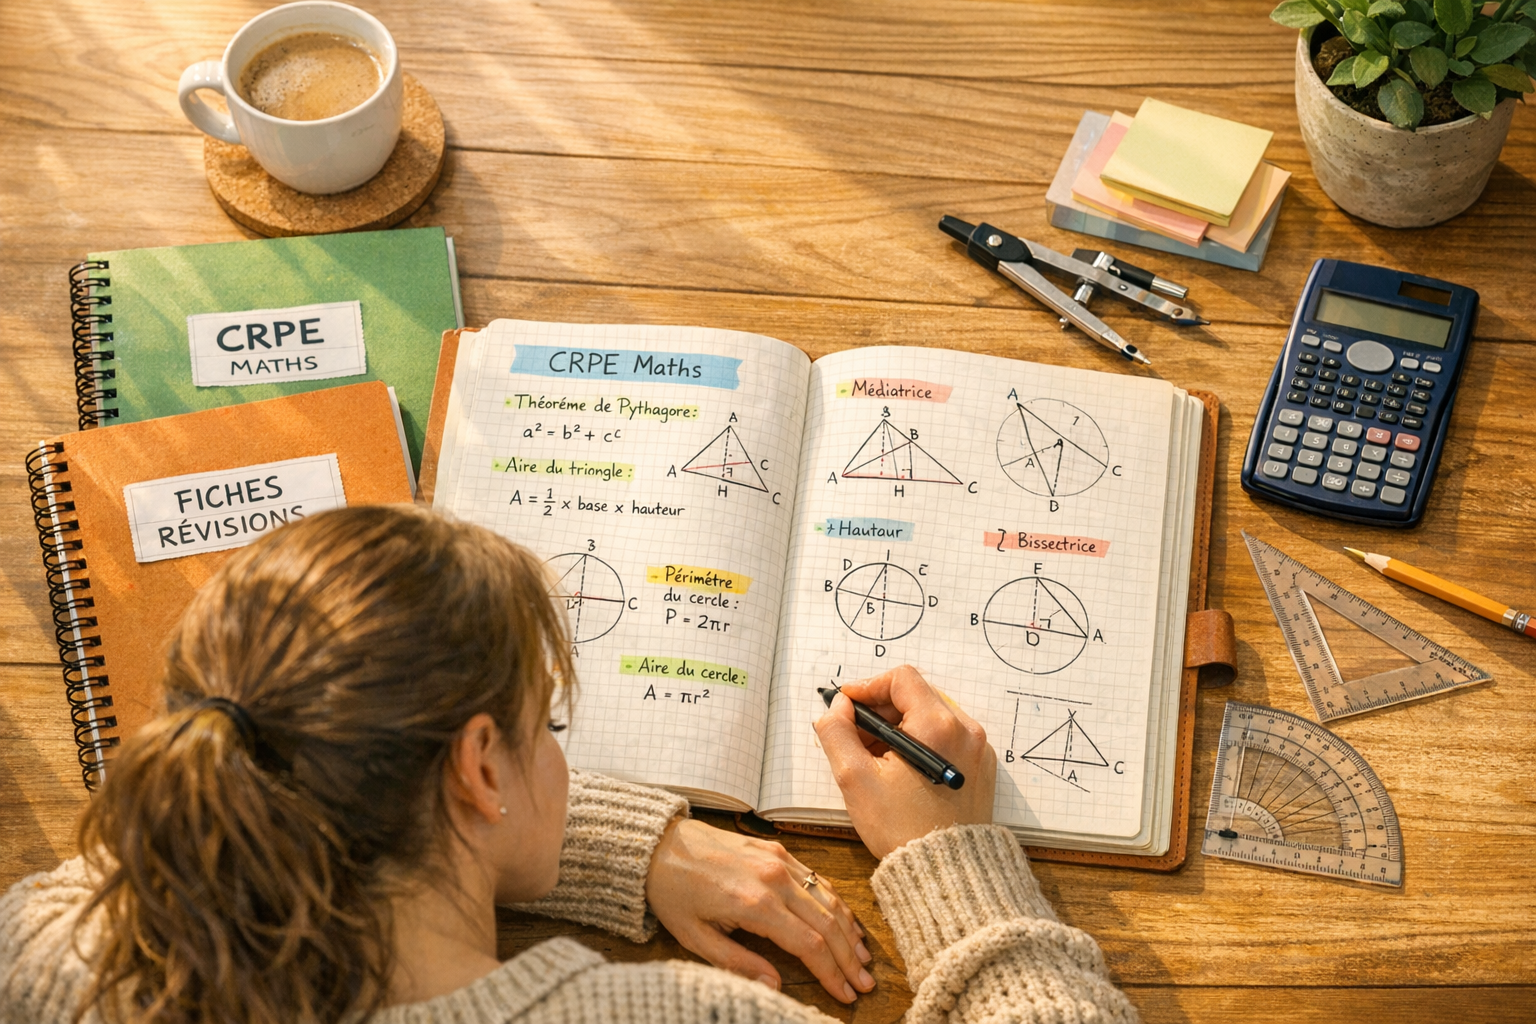 CRPE
MATHS
FICHES
RÉVISIONS
CRPE Maths
Théoréme de Pythagore:
a² = b² + cᶜ
A
A
C
H
C
Aire du triangle:
A = 1/2 x base x hauteur
B
C
A
Périmétre
du cercle:
P = 2πr
Aire du cercle:
A = πr²
Médiatrice
B
A
H
C
A
A
C
B
Hautaur
D
B
D
D
Bissectrice
B
D
A
B
A
C